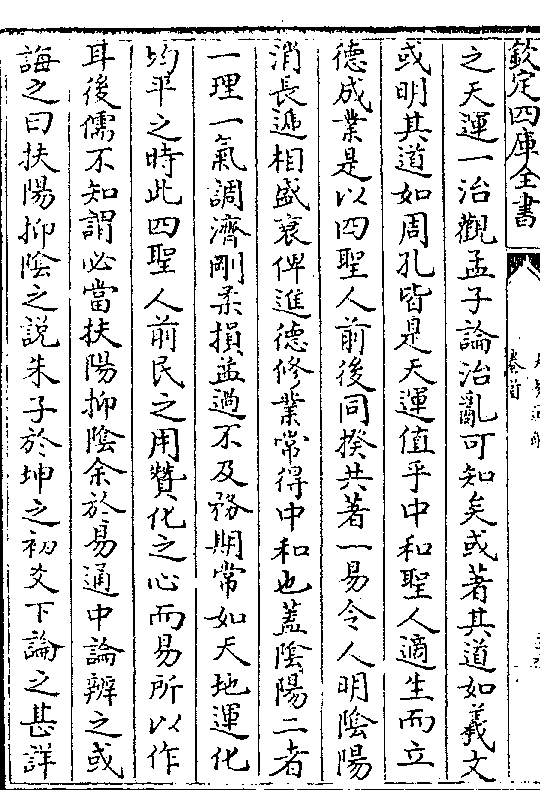 欽定四庫全書
卷首
之天運一治觀孟子論治亂可知矣或著其道如羲文
或明其道如周孔皆是天運值乎中和聖人適生而立
德成業是以四聖人前後同揆共著一易令人明陰陽
消長遞相盛衰俾進德修業常得中和也蓋陰陽二者
一理一氣調濟剛柔損益過不及務期常如天地運化
均平之時此四聖人前民之用贊化之心而易所以作
耳後儒不知謂必當扶陽抑陰余於易通中論辨之或
誨之曰扶陽抑陰之說朱子於坤之初爻下論之甚詳